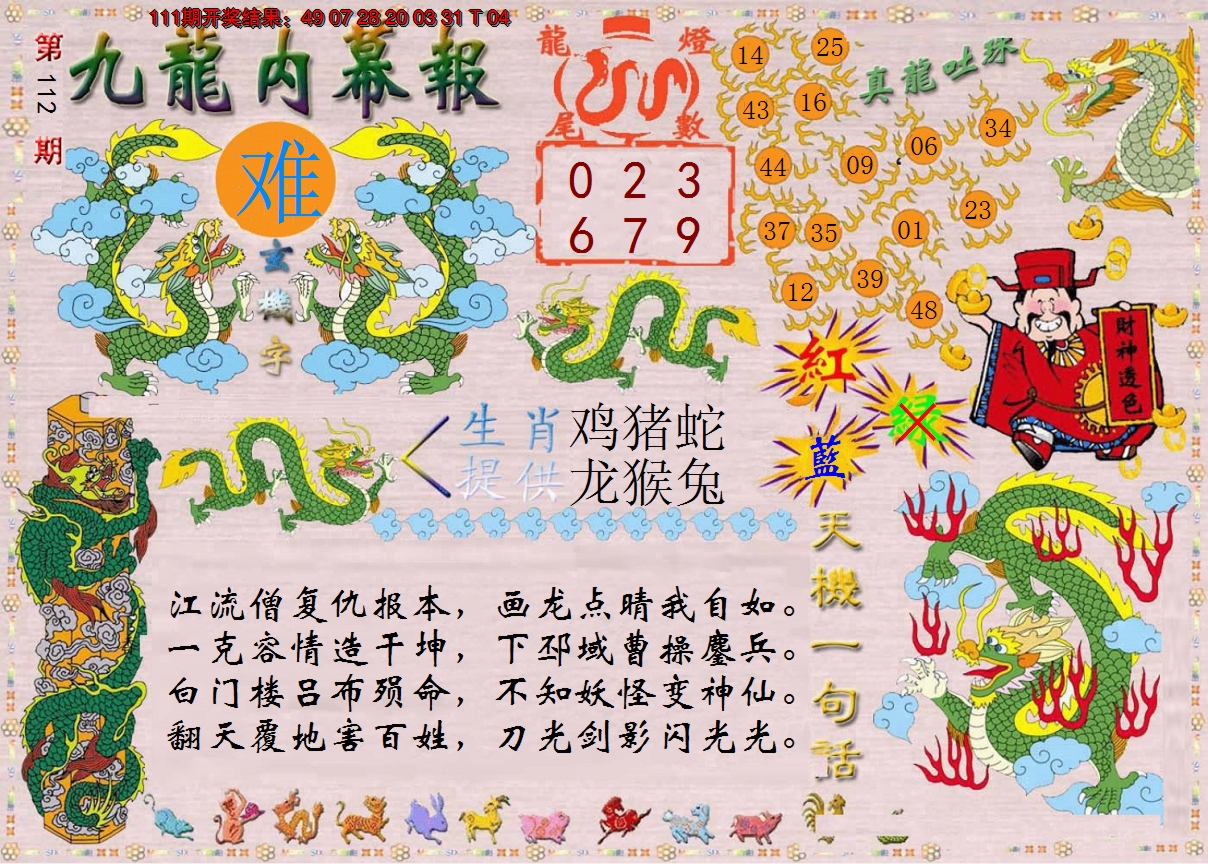 111期开奖结果：49 07 28 20 03 31 T 04
第112期
九龍内幕報
难
玄機字
龍燈
尾數
0 2 3
6 7 9
真龍吐珠
14
25
43
16
44
09
06
34
37
35
01
23
12
39
48
財神透色
紅
绿
藍
生肖
提供
鸡猪蛇
龙猴兔
天機一句話
江流僧复仇报本，画龙点晴我自如。
一克容情造干坤，下邳域曹操鏖兵。
白门楼吕布殒命，不知妖怪变神仙。
翻天覆地害百姓，刀光剑影闪光光。